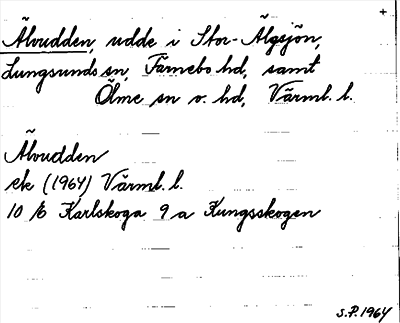 Älvudden, udde i Stor-Älgsjön,
Lungsunds sn, Färnebo hd, samt
Ölme sn o. hd, Värml. l.
Älvudden
ek (1964) Värml. l.
10 E Karlskoga 9 a Kungsskogen
S.P. 1964